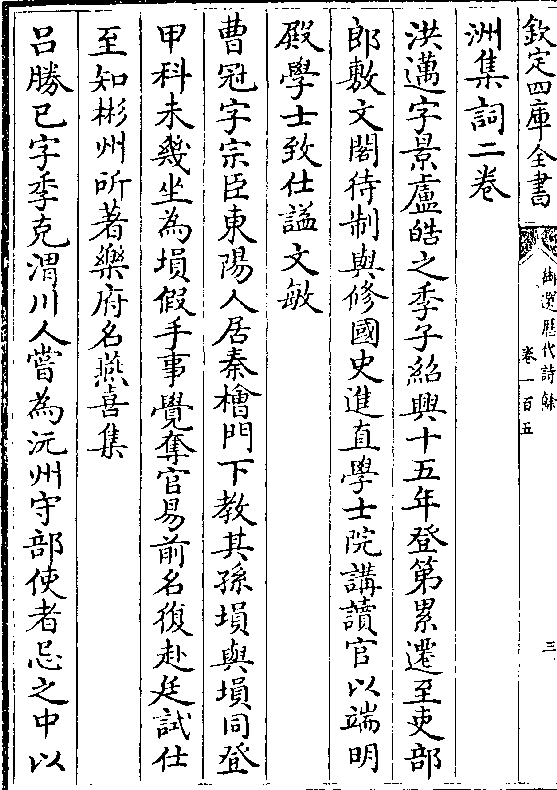 欽定四庫全書
御選歷代詩餘
卷一百五
三
洲集詞二卷
洪邁字景盧皓之季子紹興十五年登第累遷至吏部
郎敷文閣待制與修國史進直學士院講讀官以端明
殿學士致仕謚文敏
曹冠字宗臣東陽人居秦檜門下教其孫塤與塤同登
甲科未幾坐為塤假手事覺奪官易前名復赴廷試仕
至知彬州所著樂府名燕喜集
吕勝已字季克渭川人嘗為沅州守部使者忌之中以